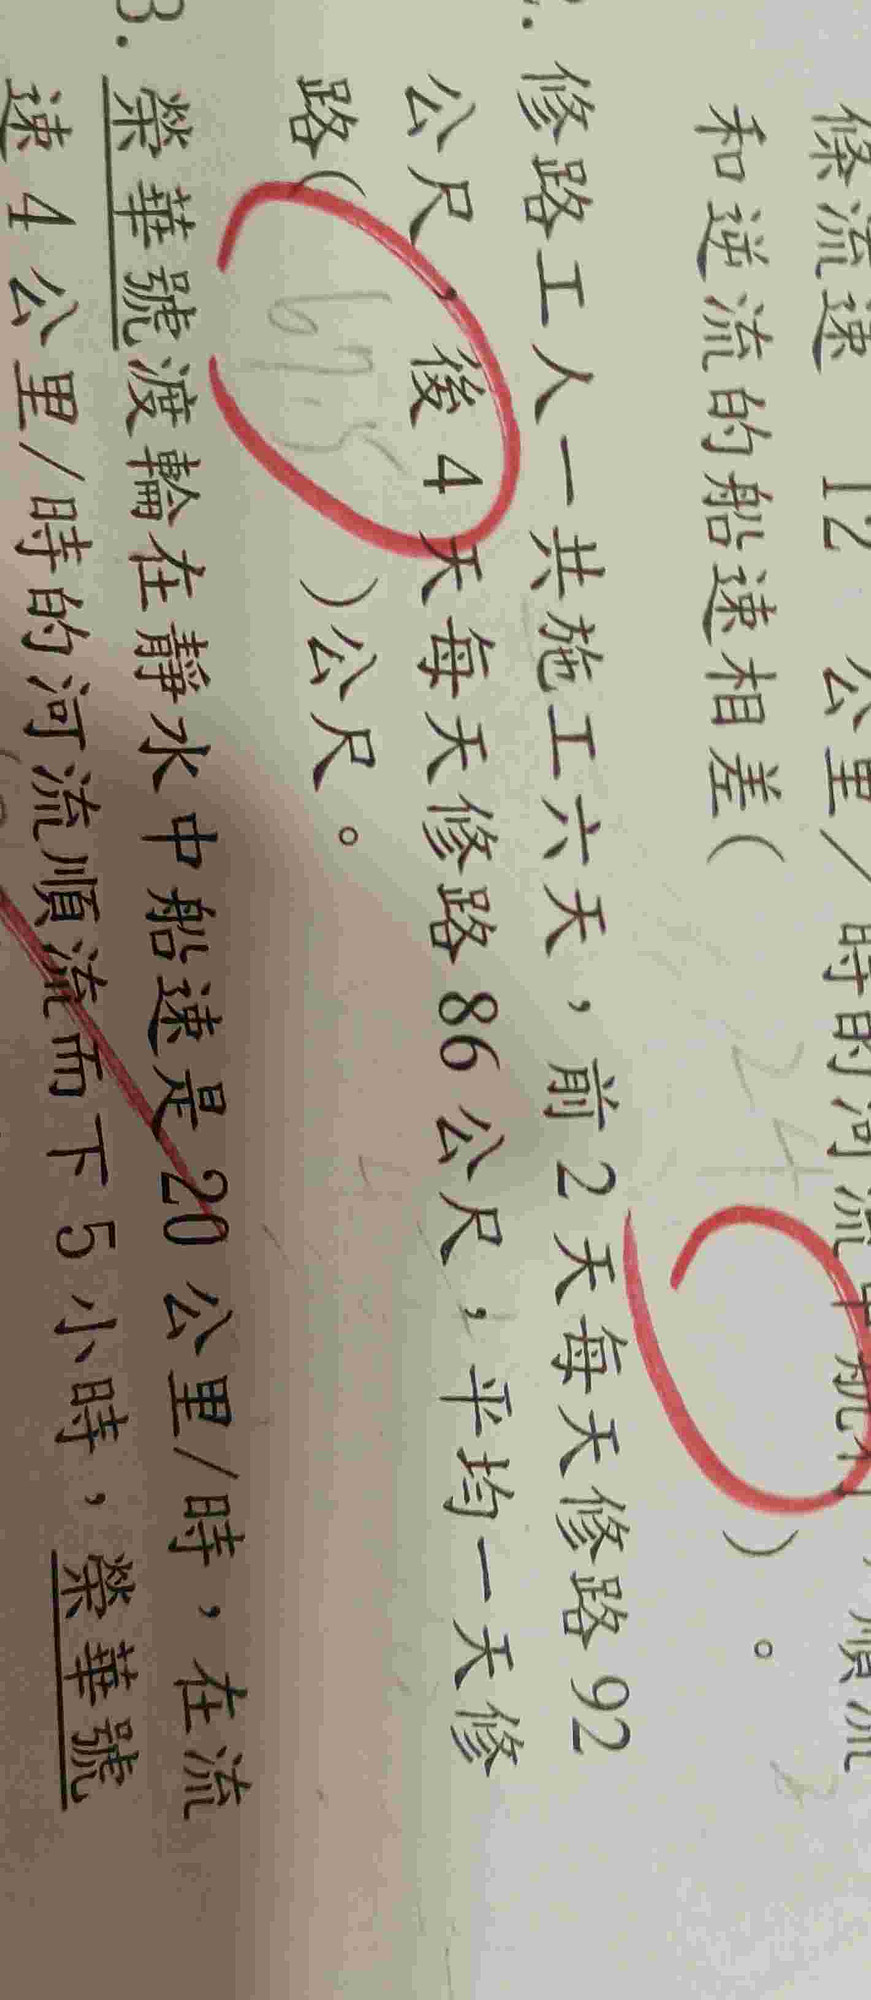 條流速 12 公里/時的河流中航行,順流
和逆流的船速相差( 24 )。
修路工人一共施工六天,前2天每天修路92
公尺,後4天每天修路86公尺,平均一天修
路( )公尺。
3. 榮華號渡輪在靜水中船速是20公里/時,在流
速4公里/時的河流順流而下5小時,榮華號